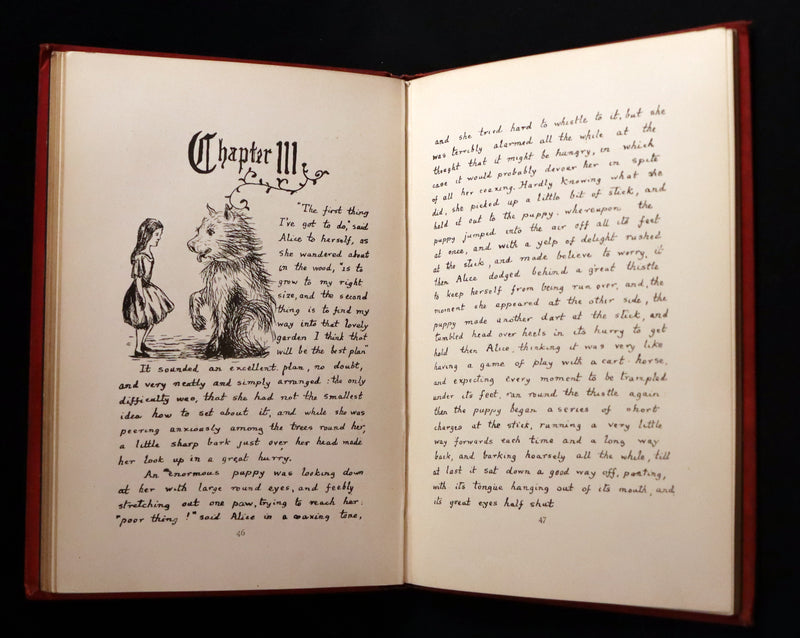 Chapter III
"The first thing
I've got to do," said
Alice to herself, as
she wandered about
in the wood, "is to
grow to my right
size, and the second
thing is to find my
way into that lovely
garden I think that
will be the best plan"
It sounded an excellent plan, no doubt,
and very neatly and simply arranged : the only
difficulty was, that she had not the smallest
idea how to set about it, and while she was
peering anxiously among the trees round her,
a little sharp bark just over her head made
her look up in a great hurry.
An enormous puppy was looking down
at her with large round eyes, and feebly
stretching out one paw, trying to reach her :
"poor thing !" said Alice in a coaxing tone,
46
and she tried hard to whistle to it, but she
was terribly alarmed all the while at the
thought that it might be hungry, in which
case it would probably devour her in spite
of all her coaxing. Hardly knowing what she
did, she picked up a little bit of stick, and
held it out to the puppy. whereupon the
puppy jumped into the air off all its feet
at once, and with a yelp of delight rushed
at the stick, and made believe to worry it
then Alice dodged behind a great thistle
to keep herself from being run over, and, the
moment she appeared at the other side, the
puppy made another dart at the stick, and
tumbled head over heels in its hurry to get
hold then Alice, thinking it was very like
having a game of play with a cart-horse,
and expecting every moment to be trampled
under its feet, ran round the thistle again
then the puppy began a series of short
charges at the stick, running a very little
way forwards each time and a long way
back, and barking hoarsely all the while, till
at last it sat down a good way off, panting,
with its tongue hanging out of its mouth, and
its great eyes half shut
47